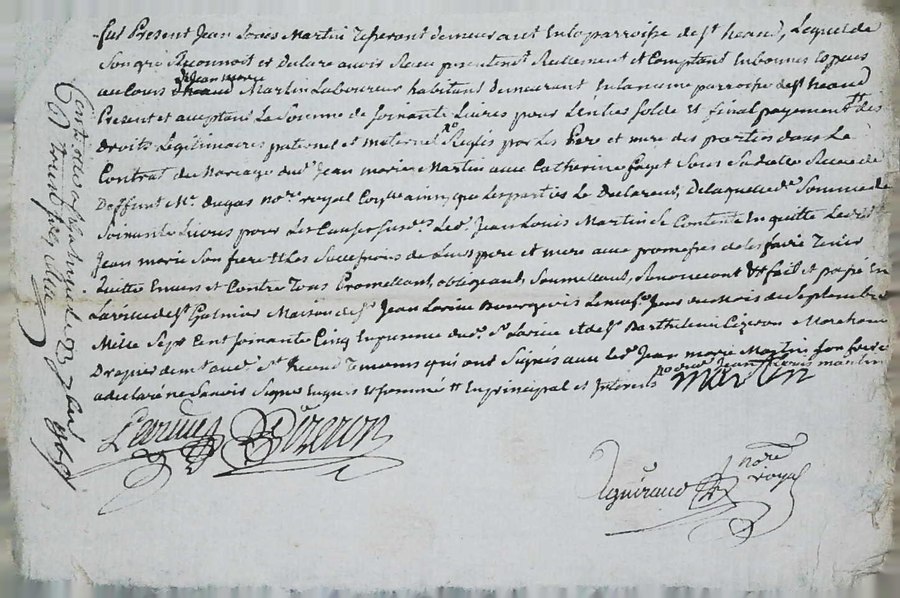 fut Present Jean Louis Martin Tisserant demeurant En la parroisse de St heand, Lequel de
Son gré Reconnoit et declare avoir Receu presentemt Reellement et Comptant En bonnes Especes
au Jean marie Martin Laboureur habitant demeurant En la mesme parroisse de St heand
Present et acceptant La Somme de Soixante Livres pour L'entier Solde Et final payement des
droits Legitimaires paternel et maternel Reglés par les Pere et mere des parties dans Le
Contrat de Mariage dud. Jean marie Martin avec Catherine Sous Sa datte Receu de
Deffunt Me. Dugas nore. royal ainsy que Les parties Le Declarent, De laquelle de. Somme de
Soixante Livres pour Les Causes susds. Led. Jean Louis Martin Se Contente En quitte Led.
Jean marie Son frere Et les Successions de Leurs pere et mere avec promesses de les faire Tenir
quitte Envers et Contre Tous Promettant, obligeant, Soumettant, Renoncant &a fait et passé En
La ville de St Galmier Maison de Sr. Jean Bourgeois Le Jour du Mois de Septembre
Mille Sept Cent Soixante Cinq En presence dud. Sr. Et de Sr. Barthelemi Cizeron Marchand
Drapier demt. aud. St heand Temoins qui ont Signés avec led. Jean marie Martin Son frere
a declaré ne Scavoir Signer Enquis Et sommé En principal et Interets led. Jean Louis martin
martin
Cizeron
nore
royal
Contrôlé a St